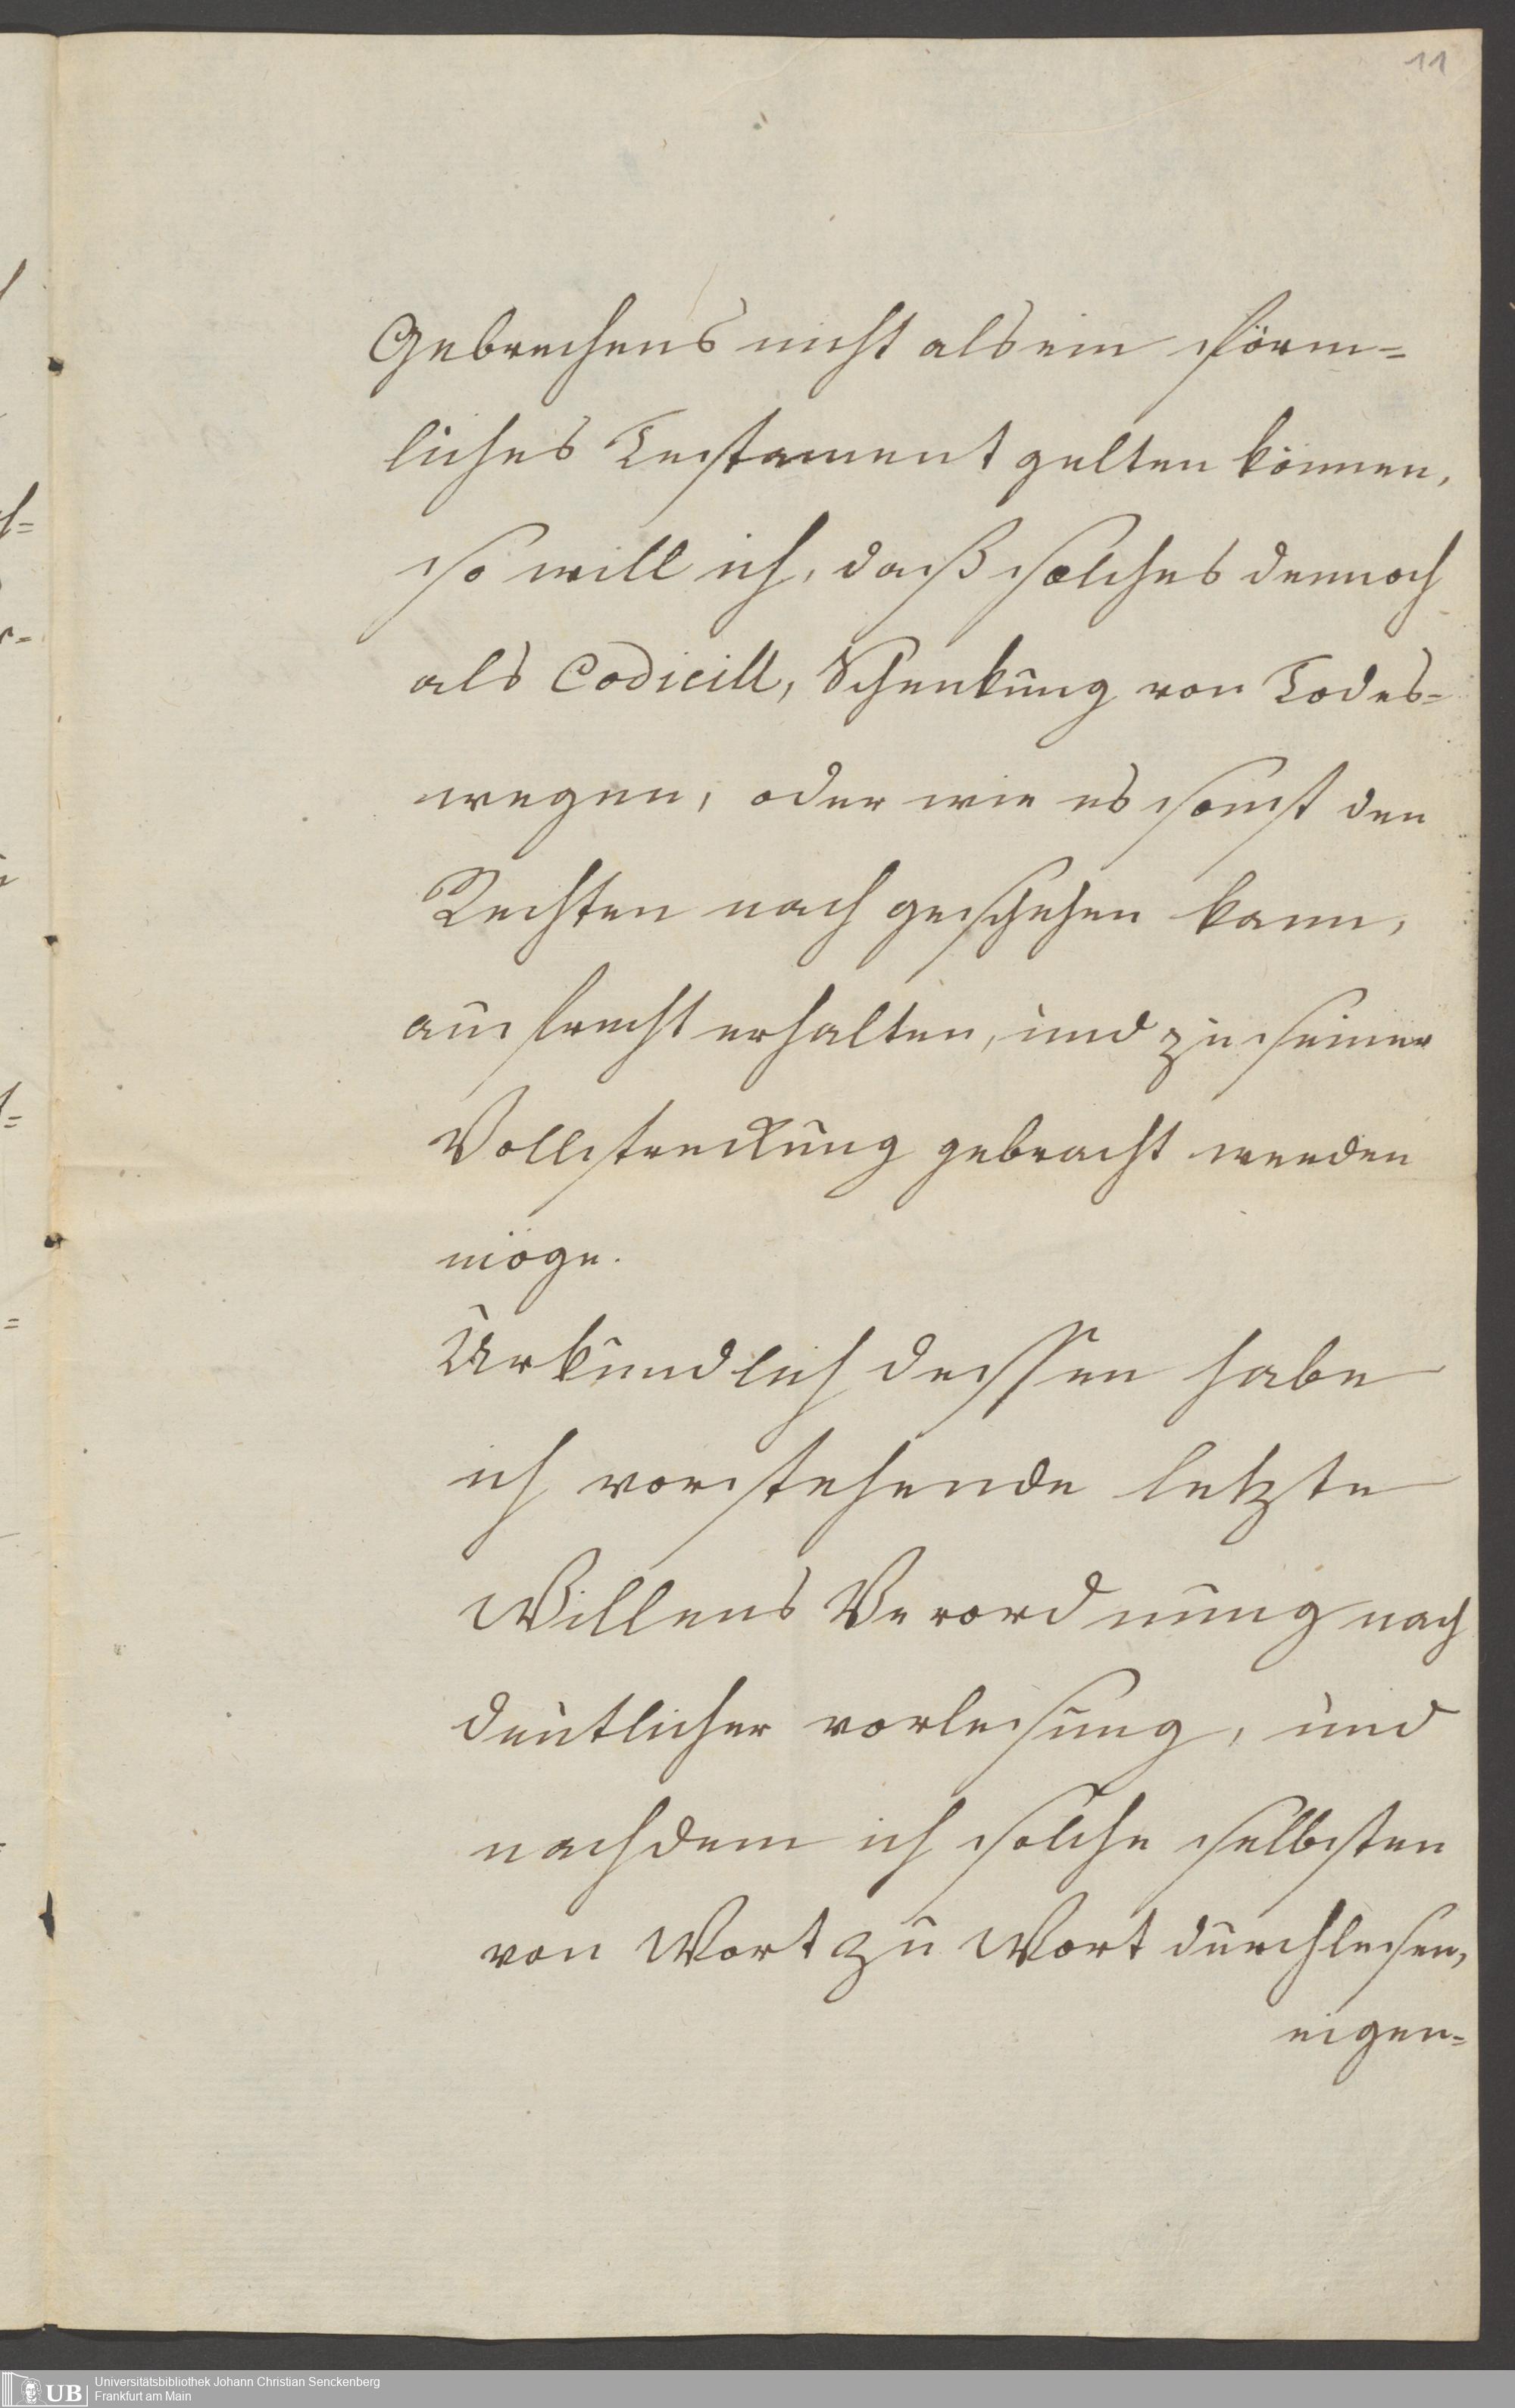 11
Gebrechens nicht als ein förm=
liches Testament gelten können,
so will ich, daß solches dennoch
als Codicill, Schenkung von Todes=
wegen, oder wie es sonst den
Rechten nach geschehen kann,
aufrecht erhalten, und zu seiner
Vollstreckung gebracht werden
möge.
Urkundlich dessen habe
ich vorstehende letzte
Willens Verordnung nach
deutlicher vorlesung, und
nachdem ich solche selbsten
von Wort zu Wort durchlesen,
eigen=
UB
Universitätsbibliothek Johann Christian Senckenberg
Frankfurt am Main